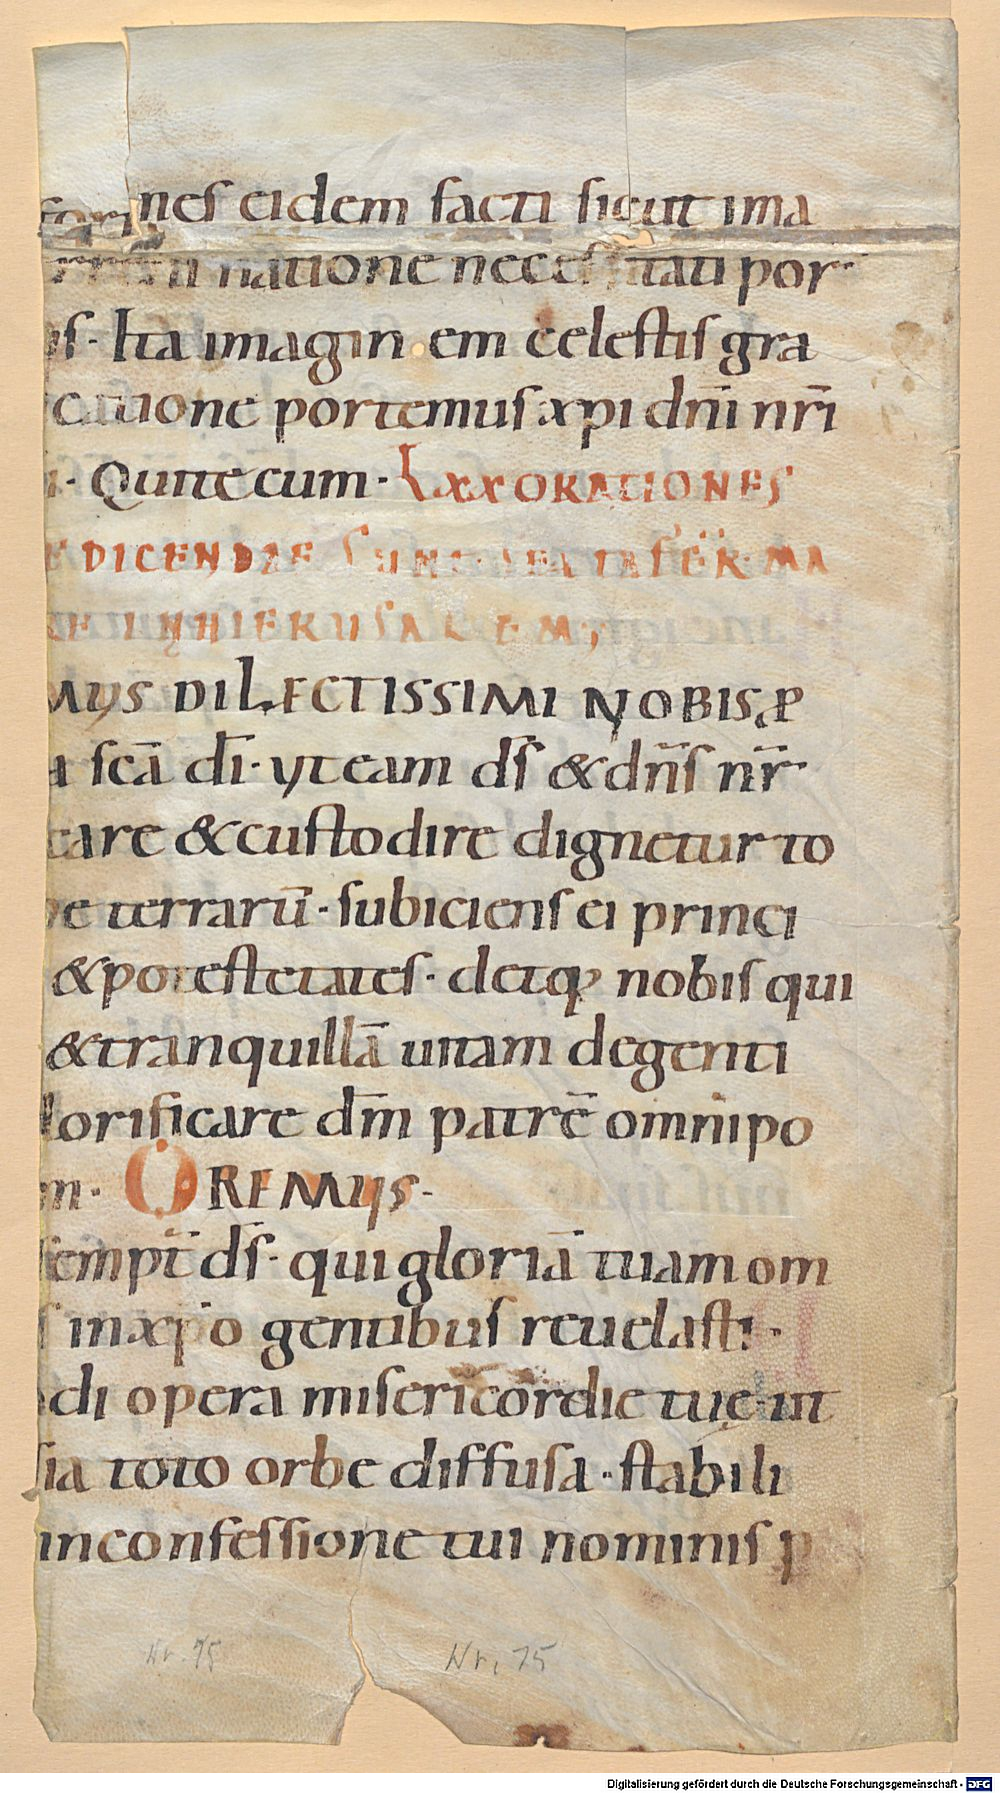 formes eidem facti sicut ima
terreni natione necessitati por
us· Ita imaginem celestis gra
catione portemus xpi dñi nr̄i
i· Qui tecum· LXX ORATIONES
E DICENDAE SUNT FER· MA
RE IN HIERUSALEM;
MUS DILECTISSIMI NOBIS P
a scā dī· ut eam ds̄ & dñs nr̄
care & custodire dignetur to
be terrarū· subiciens ei princi
& potestetates· detq; nobis qui
& tranquillā uitam degenti
lorificare dm̄ patrē omnipo
m· OREMUS·
sempt̄ ds̄· qui gloriā tuam om
s in xpo gentibus reuelasti·
odi opera misericordie tuę· ut
sia toto orbe diffusa· stabili
in confessione tui nominis p
Nr. 75 Nr. 75
Digitalisierung gefördert durch die Deutsche Forschungsgemeinschaft - DFG